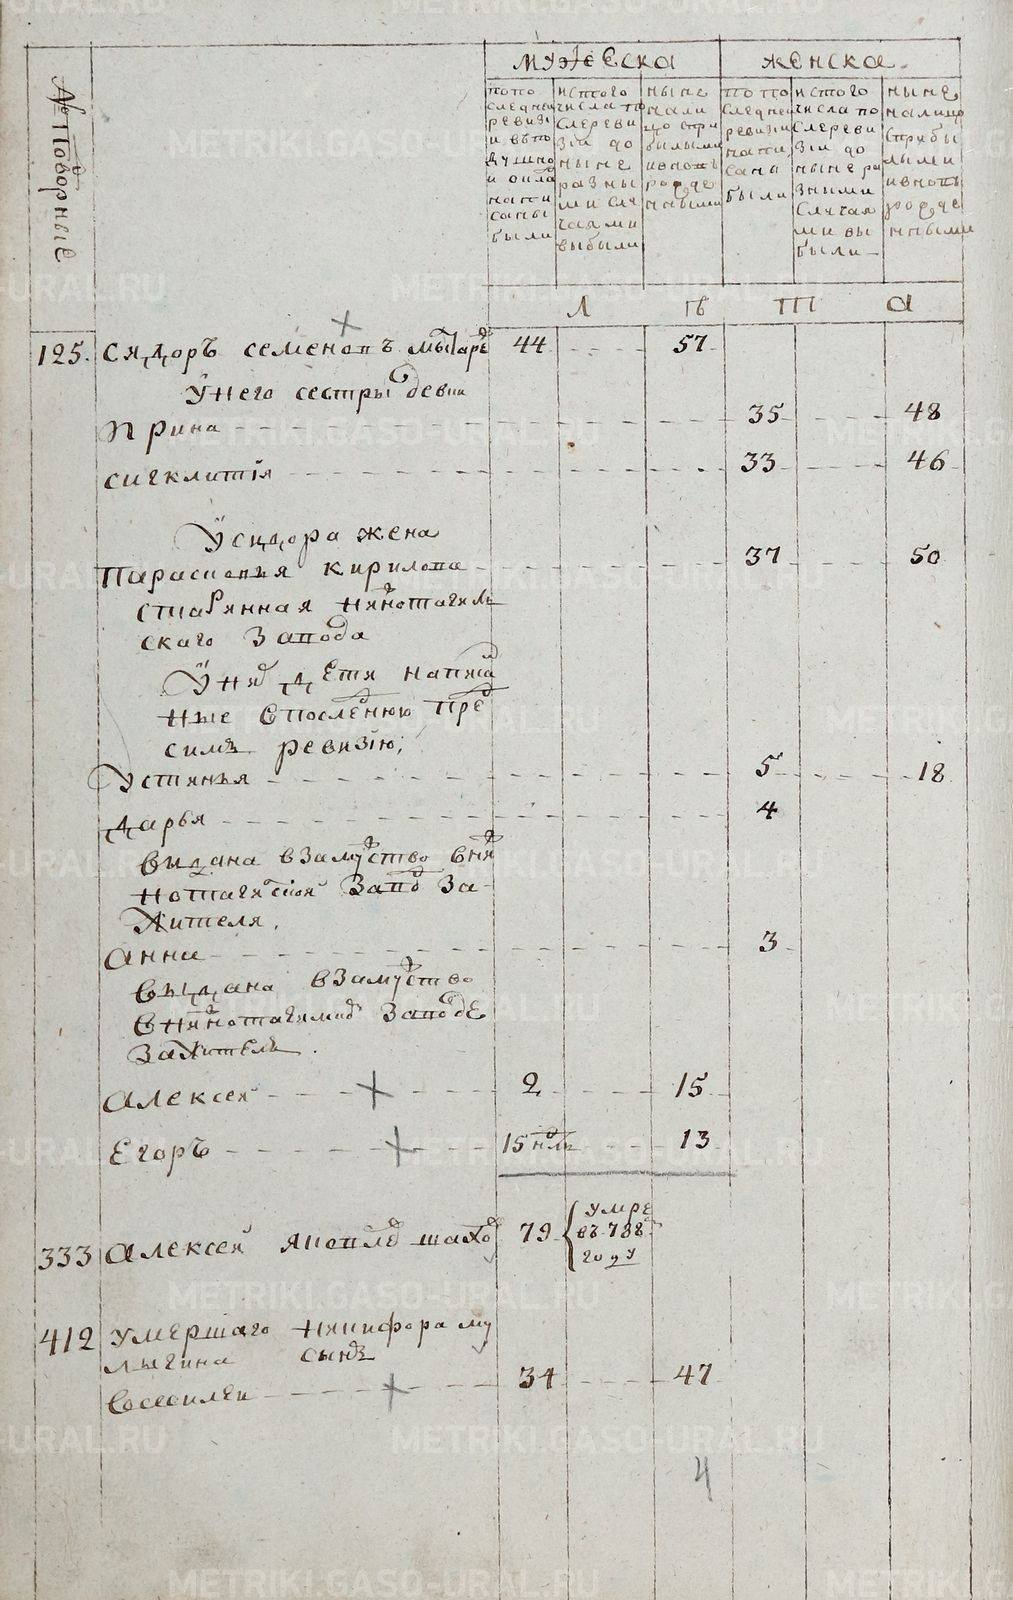 № Подворные
мужеска
женска.
по по
следней
ревизи
и въ по
душно
и окла
напи
саны
были
исто го
числа по
сле реви
зiи до
ныне
разны
ми слу
чаями
выбыли
ныне
нали
цо с при
былыми
и вновь
рожде
нными
по по
следней
ревизи
напи
саны
были
исто го
числа по
сле реви
зiи до
ныне ра
зными
случая
ми вы
были
ныне
налицо
с прибы
лыми
и вновь
рожде
нными
Л ѣ т а
125. Сидоръ семеновъ мытаре 44 57
У него сестры девки
Ирина 35 48
сигклитiя 33 46
У сидора жена
Парасковья кирилова 37 50
старинная нижнотагиль
скаго завода
У них дети написа
ные в последнюю пред
симъ ревизiю;
Устинья 5 18
дарья 4
выдана в замуство в ниж
нотагилской завод за
жителя.
анна 3
выдана в замуство
в нижнотагилской заводе
за жителя.
алексей 2 15
Егоръ 15 нѣд 13
333 алексей яковлев 79 умре
въ 788
году
412 умершаго никифора му
лыгина сынъ
василей 34 47
4
METRIKI.GASO-URAL.RU